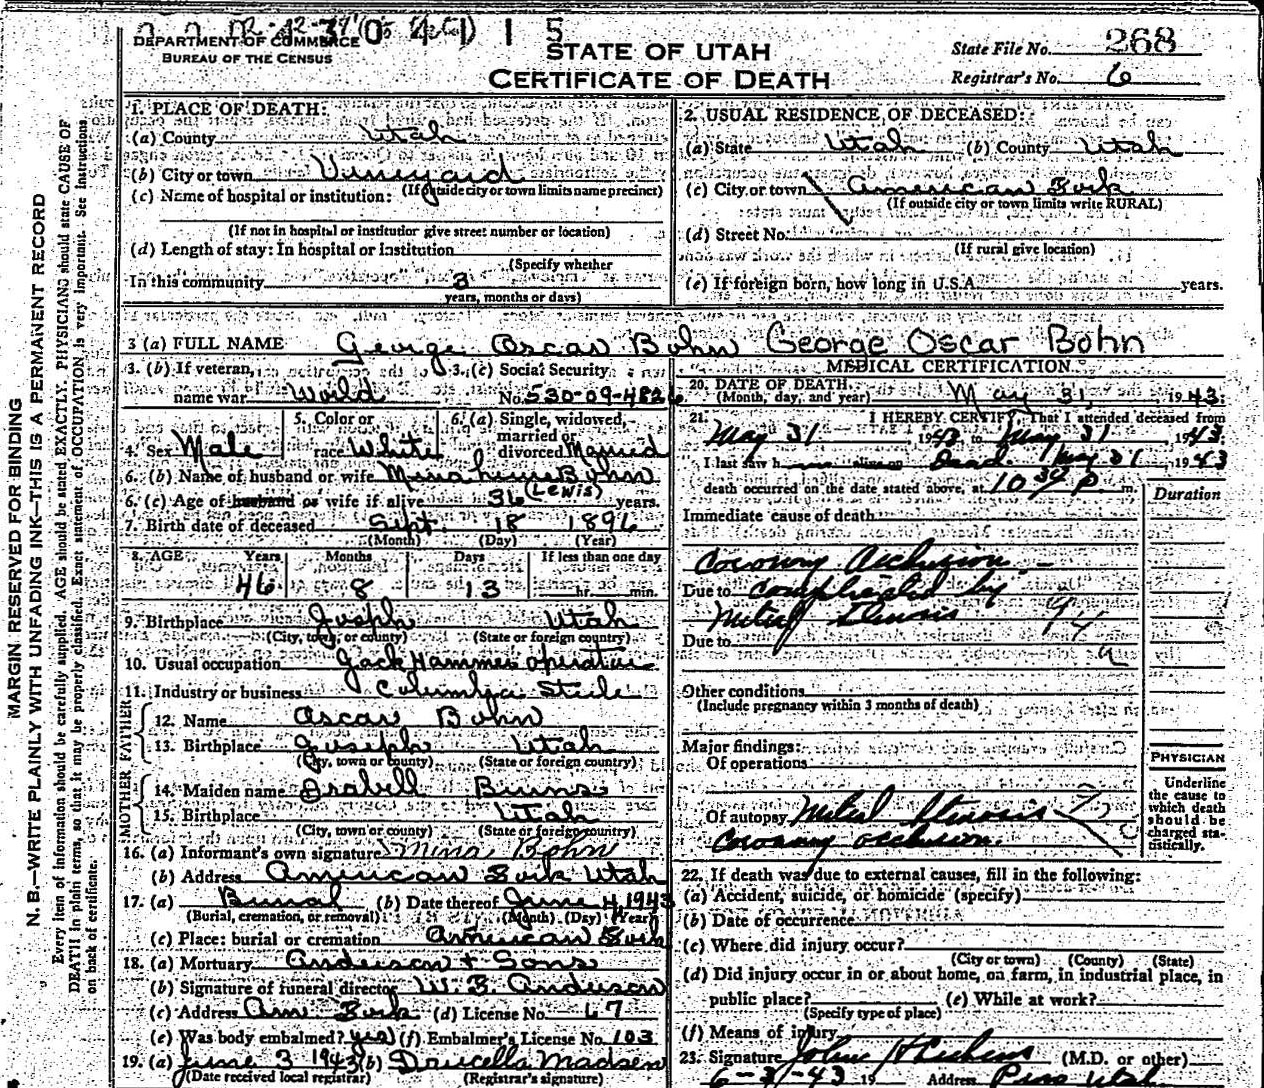 DEPARTMENT OF COMMERCE
BUREAU OF THE CENSUS
0 4 1 1 5
STATE OF UTAH
CERTIFICATE OF DEATH
State File No. 268
Registrar's No. 6
MARGIN RESERVED FOR BINDING
N. B.—WRITE PLAINLY WITH UNFADING INK—THIS IS A PERMANENT RECORD
Every item of information should be carefully supplied. AGE should be stated EXACTLY. PHYSICIANS should state CAUSE OF
DEATH in plain terms, so that it may be properly classified. Exact statement of OCCUPATION is very important. See instructions
on back of certificate.
1. PLACE OF DEATH:
(a) County Utah
(b) City or town Vineyard
(If outside city or town limits name precinct)
(c) Name of hospital or institution:
(If not in hospital or institution give street number or location)
(d) Length of stay: In hospital or institution
(Specify whether
In this community 3
years, months or days)
2. USUAL RESIDENCE OF DECEASED:
(a) State Utah (b) County Utah
(c) City or town American Fork
(If outside city or town limits write RURAL)
(d) Street No.
(If rural give location)
(e) If foreign born, how long in U.S.A. years.
3 (a) FULL NAME George Oscar Bohn George Oscar Bohn
3. (b) If veteran, 3. (c) Social Security
name war World No. 530-09-4826
4. Sex Male 5. Color or race White 6. (a) Single, widowed, married or divorced Married
6. (b) Name of husband or wife Mina Bohn
(Lewis)
6. (c) Age of husband or wife if alive 36 years.
7. Birth date of deceased Sept. 18 1896
(Month) (Day) (Year)
8. AGE Years Months Days If less than one day
46 8 13 hr. min.
9. Birthplace Joseph Utah
(City, town, or county) (State or foreign country)
10. Usual occupation Jack Hammer operator
11. Industry or business Columbia Steele
FATHER
12. Name Oscar Bohn
13. Birthplace Joseph Utah
(City, town or county) (State or foreign country)
MOTHER
14. Maiden name Isabell Burns
15. Birthplace Utah
(City, town or county) (State or foreign country)
16. (a) Informant's own signature Mina Bohn
(b) Address American Fork Utah
17. (a) Burial (b) Date thereof June 4, 1943
(Burial, cremation, or removal) (Month) (Day) (Year)
(c) Place: burial or cremation American Fork
18. (a) Mortuary Anderson & Sons
(b) Signature of funeral director W. B. Anderson
(c) Address Am. Fork (d) License No. 67
(e) Was body embalmed? yes (f) Embalmer's License No. 103
19. (a) June 3 1943 (b) Drucella Madsen
(Date received local registrar) (Registrar's signature)
MEDICAL CERTIFICATION
20. DATE OF DEATH
(Month, day, and year) May 31, 1943.
21. I HEREBY CERTIFY That I attended deceased from
May 31 1943 to May 31 1943.
I last saw h alive on Dead. May 31 1943
death occurred on the date stated above, at 10 34 P. m.
Duration
Immediate cause of death
Coronary Occlusion
Due to complicated by
Mitral Stenosis 94
Due to a
Other conditions
(Include pregnancy within 3 months of death)
Major findings:
Of operations
PHYSICIAN
Underline
the cause to
which death
should be
charged sta-
tistically.
Of autopsy Mitral Stenosis
Coronary occlusion.
22. If death was due to external causes, fill in the following:
(a) Accident, suicide, or homicide (specify)
(b) Date of occurrence
(c) Where did injury occur?
(City or town) (County) (State)
(d) Did injury occur in or about home, on farm, in industrial place, in
public place? (e) While at work?
(Specify type of place)
(f) Means of injury
23. Signature (M.D. or other)
43 19 Address Provo Utah